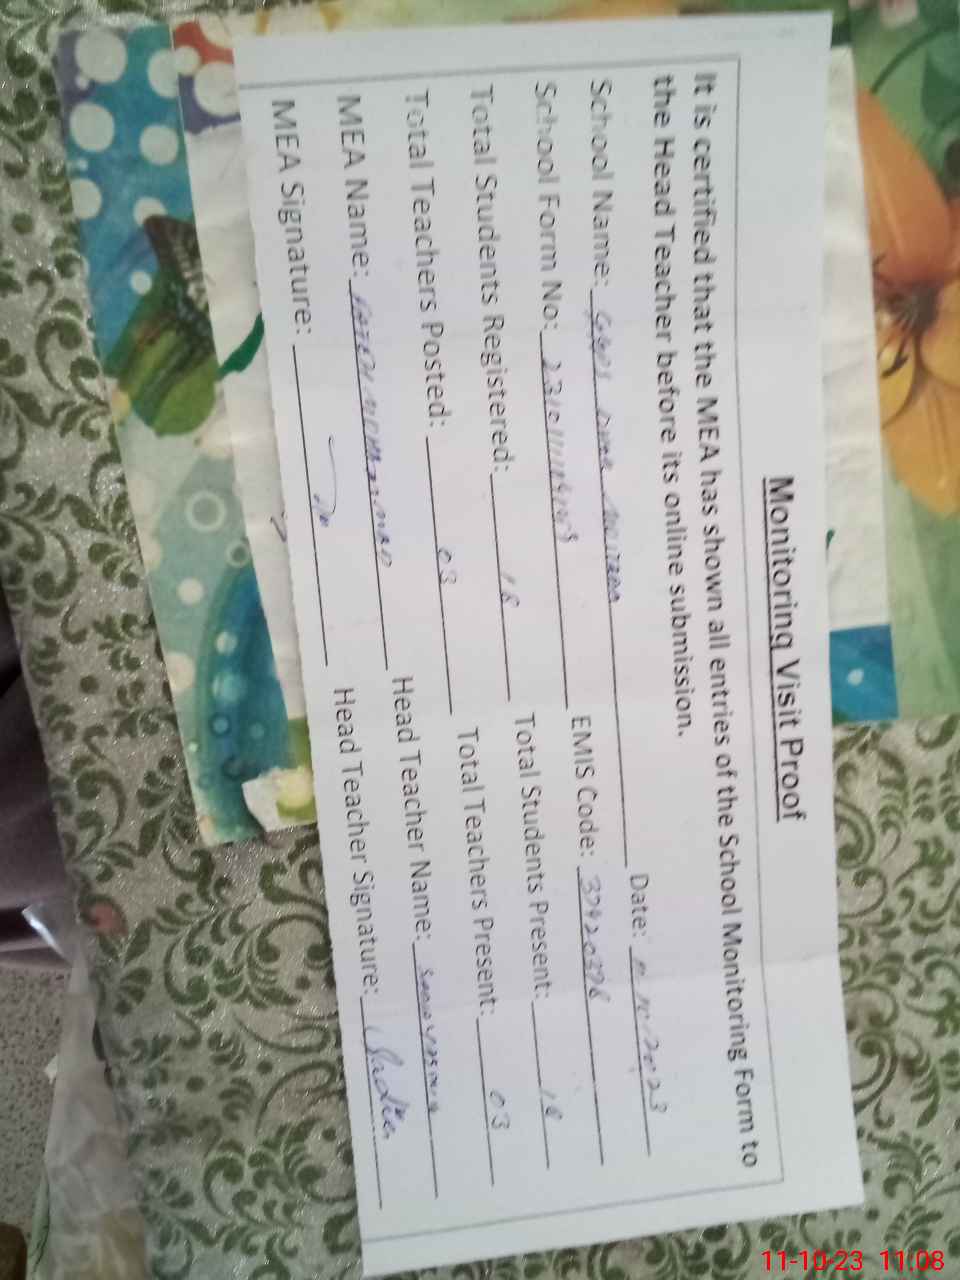 Monitoring Visit Proof
It is certified that the MEA has shown all entries of the School Monitoring Form to
the Head Teacher before its online submission.
School Name: Date: 2023
School Form No: EMIS Code: 37920376
Total Students Registered: 18 Total Students Present: 18
Total Teachers Posted: 03 Total Teachers Present: 03
MEA Name: Head Teacher Name:
MEA Signature: Head Teacher Signature:
11-10-23 11:08